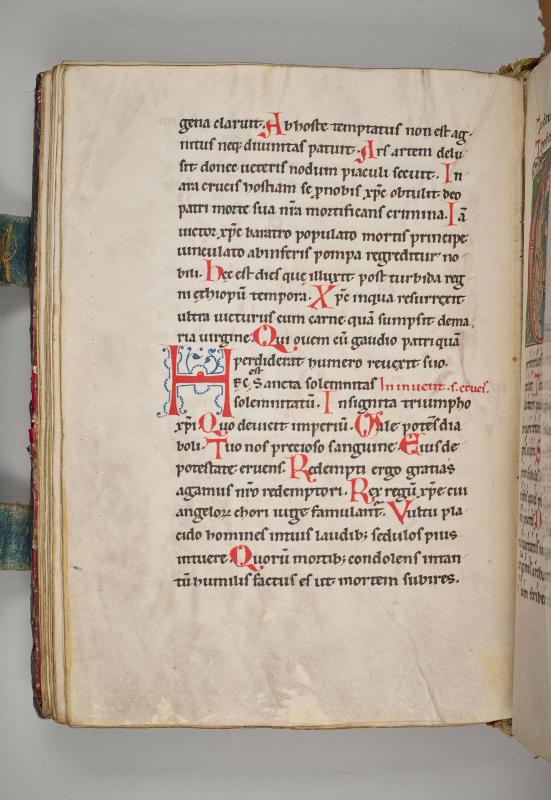 gena claruit. Ab hoste temptatus non est ag-
nitus neq; diuinitas patuit. Ars artem delu
sit donec ueteris nodum piaculi secuit. In
ara crucis hostiam se ꝓ nobis xp̄c obtulit deo
patri morte sua nr̄a mortificans crimina. Iā
uictor xp̄c baratro populato mortis principe
uinculato ab inferis pompa regreditur no
bili. Hec est dies quę illuxit post turbida reg
ni ęthiopū tempora. Xp̄c in qua resurrexit
ultra uicturus cum carne quā sumpsit de ma
ria uirgine. Qui ouem cū gaudio patri quā
perdiderat humero reuexit suo.
est
HEC Sancta solemnitas In inuent. s. crucis.
solemnitatū. Insignita triumpho
xp̄i. Quo deuicit imperiū. Male potēs dia
boli. Tuo nos precioso sanguine. Eius de
potestate eruens. Redempti ergo gratias
agamus nr̄o redemptori. Rex regū xp̄e cui
angeloꝝ chori iuge famulant. Vultu pla
cido homines intuis laudib; sedulos pius
intuere. Quorū mortib; condolens in tan
tū humilis factus es ut mortem subires.